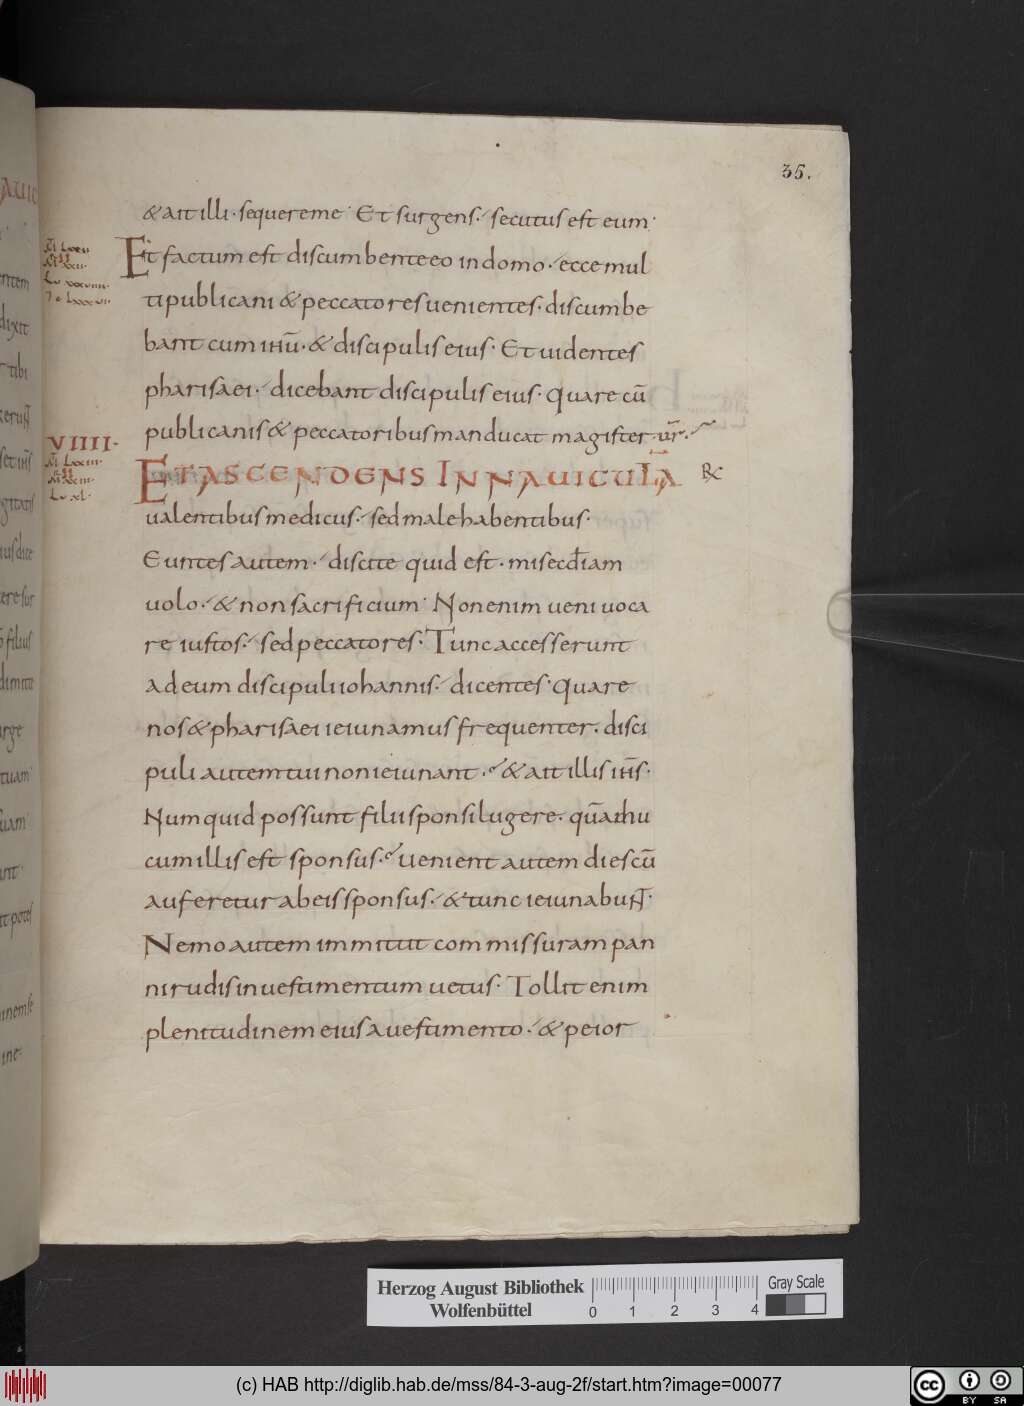 35.
& ait illi · sequere me · Et surgens · secutus est eum ·
Et factum est discumbente eo in domo · ecce mul
ti publicani & peccatores uenientes · discumbe
bant cum ihū · & discipulis eius · Et uidentes
pharisaei · dicebant discipulis eius · Quare cū
publicanis & peccatoribus manducat magister ur̄ ·
VIIII ·
ET ASCENDENS IN NAUICULĀ
ualentibus medicus · sed male habentibus ·
Euntes autem · discite quid est · misecđiam
uolo · & non sacrificium · Non enim ueni uoca
re iustos · sed peccatores · Tunc accesserunt
ad eum discipuli iohannis · dicentes · Quare
nos & pharisaei ieiunamus frequenter · disci
puli autem tui non ieiunant · & ait illis ih̄s ·
Numquid possunt filii sponsi lugere · quādiu
cum illis est sponsus · Uenient autem dies cū
auferetur ab eis sponsus · & tunc ieiunabuñt ·
Nemo autem immittit commissuram pan
ni rudis in uestimentum uetus · Tollit enim
plenitudinem eius a uestimento · & peior
Herzog August Bibliothek
Wolfenbüttel
0 1 2 3 4
Gray Scale
(c) HAB http://diglib.hab.de/mss/84-3-aug-2f/start.htm?image=00077
cc BY SA